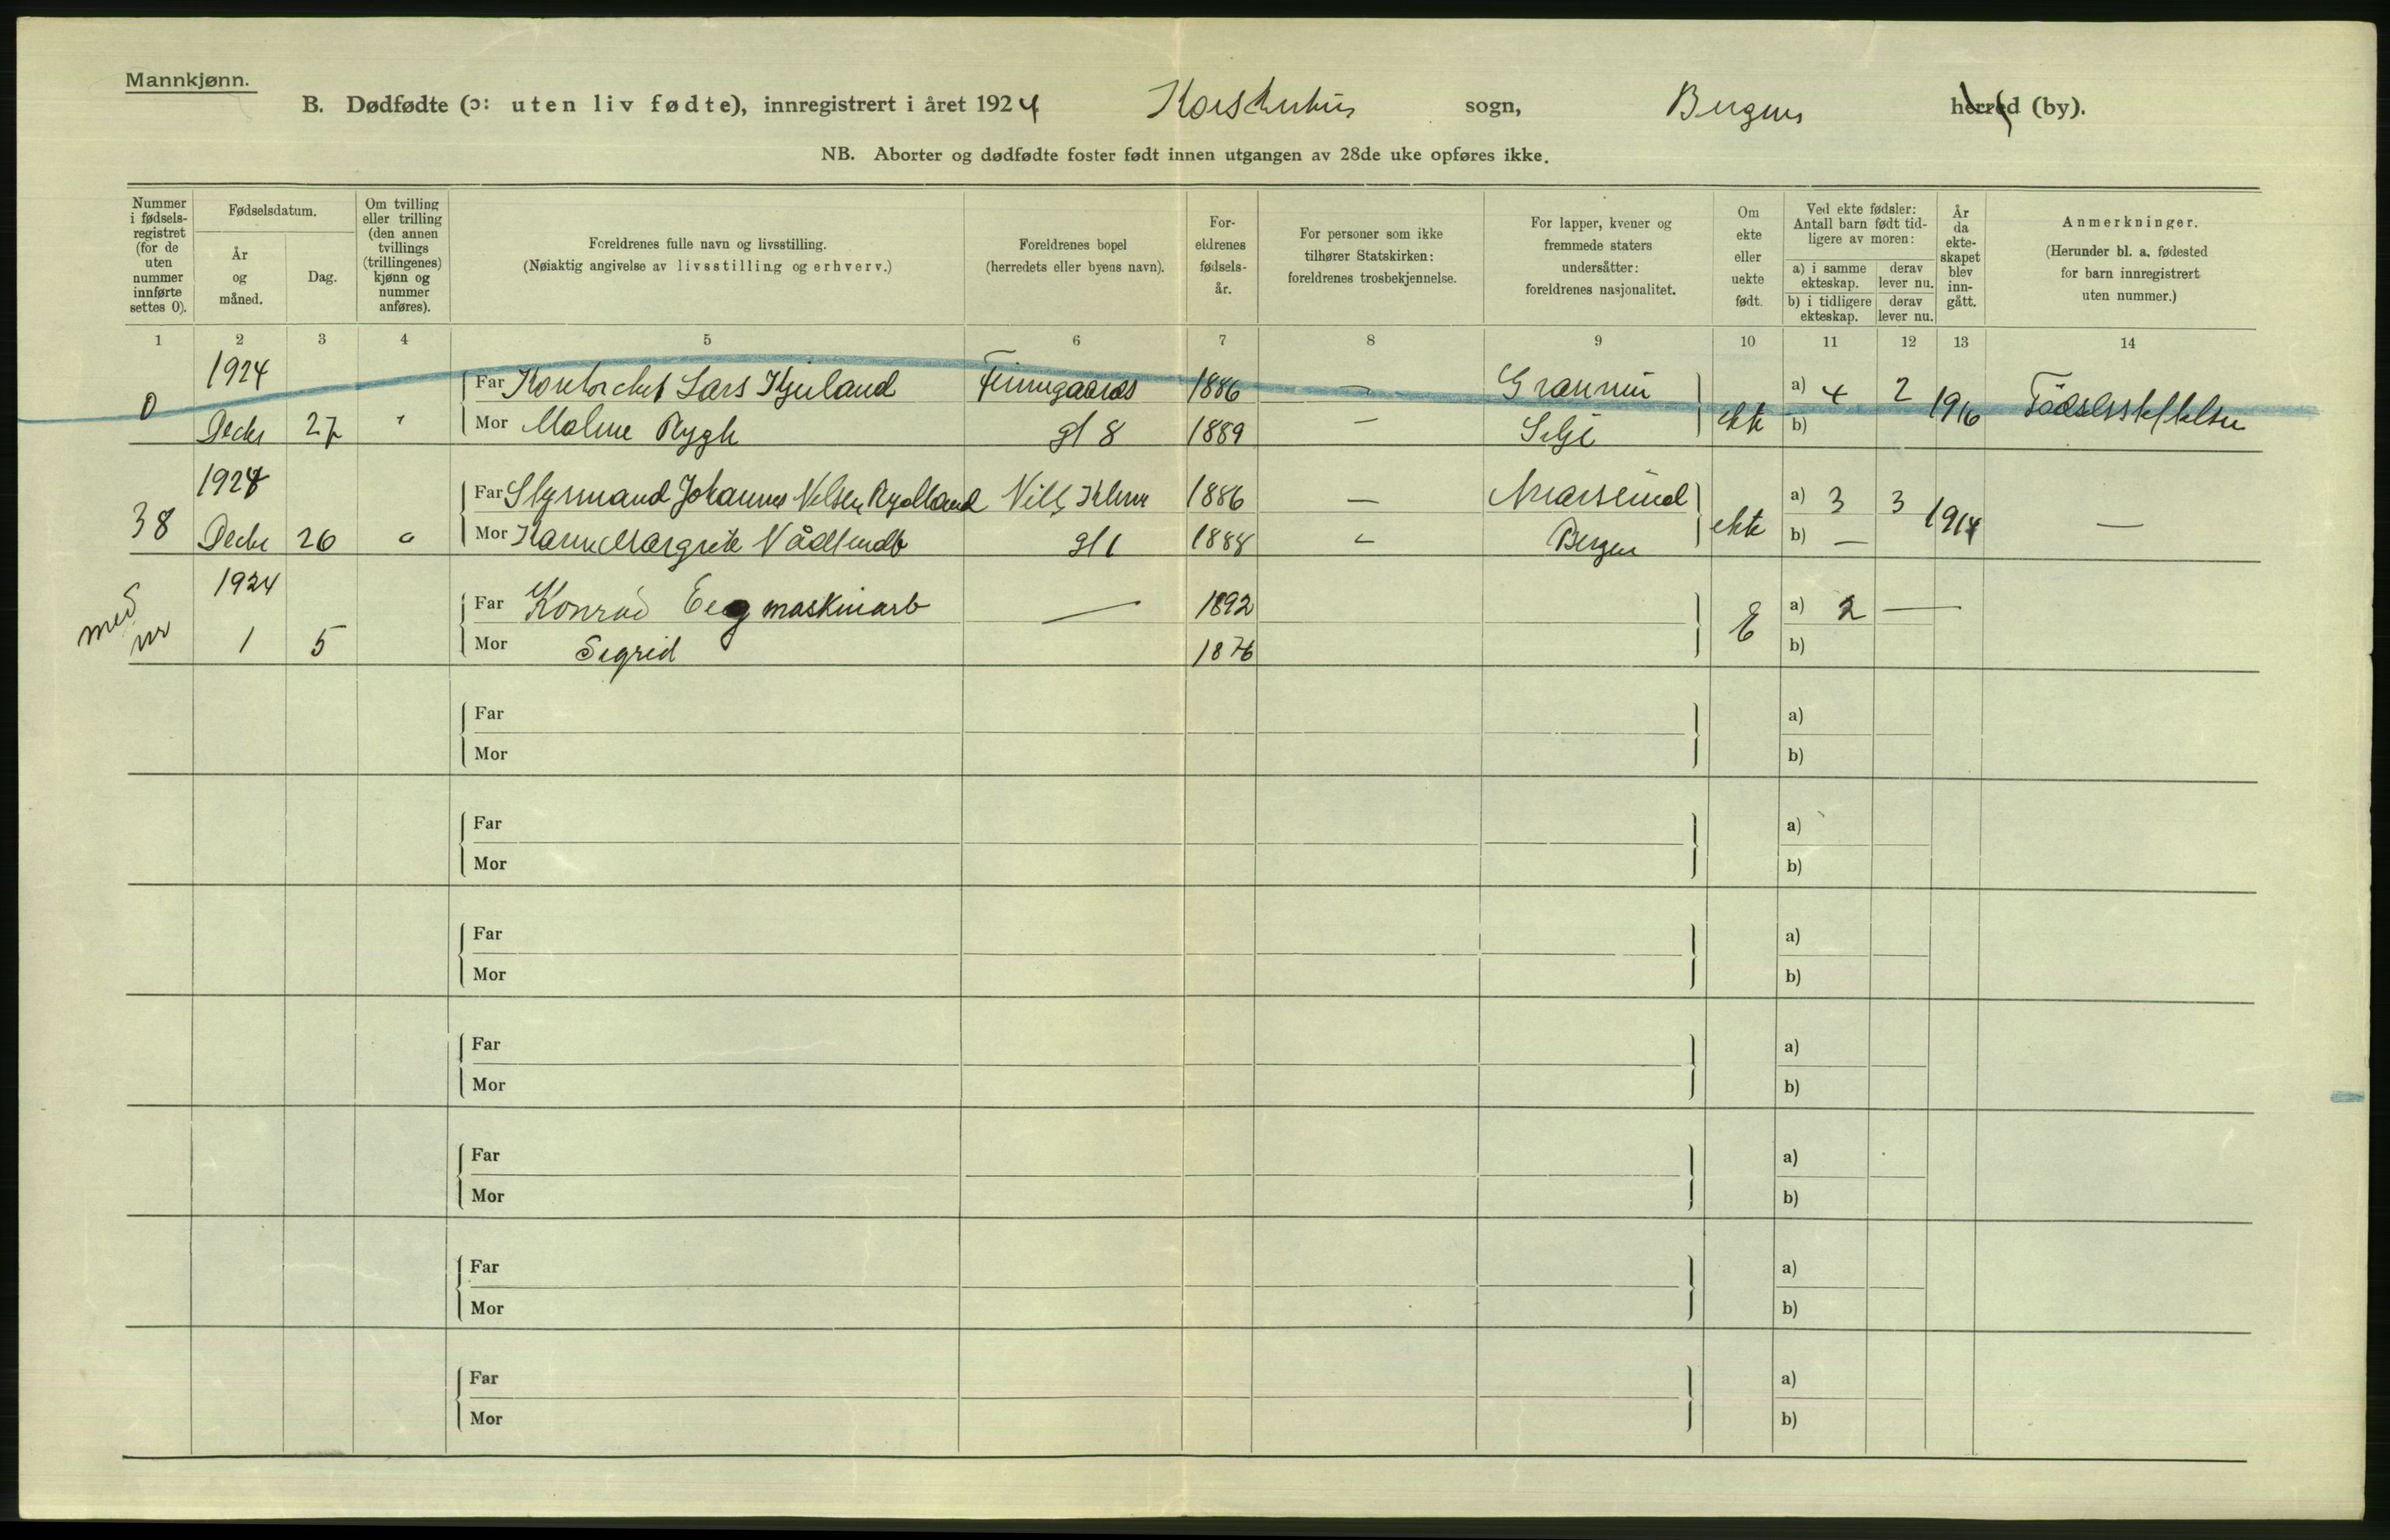 Mannkjønn.
B. Dødfødte (ɔ: uten liv fødte), innregistrert i året 1924 Korskirken sogn, Bergens herred (by).
NB. Aborter og dødfødte foster født innen utgangen av 28de uke opføres ikke.
Nummer i fødsels-registret (for de uten nummer innførte settes 0).
Fødselsdatum.
År og måned.
Dag.
Om tvilling eller trilling (den annen tvillings (trillingenes) kjønn og nummer anføres).
Foreldrenes fulle navn og livsstilling.
(Nøiaktig angivelse av livsstilling og erhverv.)
Foreldrenes bopel
(herredets eller byens navn).
For-eldrenes fødsels-år.
For personer som ikke tilhører Statskirken: foreldrenes trosbekjennelse.
For lapper, kvener og fremmede staters undersåtter: foreldrenes nasjonalitet.
Om ekte eller uekte født.
Ved ekte fødsler: Antall barn født tid-ligere av moren:
a) i samme ekteskap. derav lever nu.
b) i tidligere ekteskap. derav lever nu.
År da ekte-skapet blev inn-gått.
Anmerkninger.
(Herunder bl. a. fødested for barn innregistrert uten nummer.)
1 2 3 4 5 6 7 8 9 10 11 12 13 14
0 1924 Decbr 27 "
Far Lars Kjeiland 1886 — a) 4 2 1916
Mor Rygh gt 8 1889 — Selje ekte b)
38 1924 Decbr 26
Far Styrmand Johannes Nilsen 1886 — a) 3 3 1914 —
Mor Margrete gt 1 1888 Bergen ekte b) —
med nr 1924 1 5
Far Konrad Eeg maskinarb — 1892 E a) 2 —
Mor Sigrid 1876 b)
Far a)
Mor b)
Far a)
Mor b)
Far a)
Mor b)
Far a)
Mor b)
Far a)
Mor b)
Far a)
Mor b)
Far a)
Mor b)